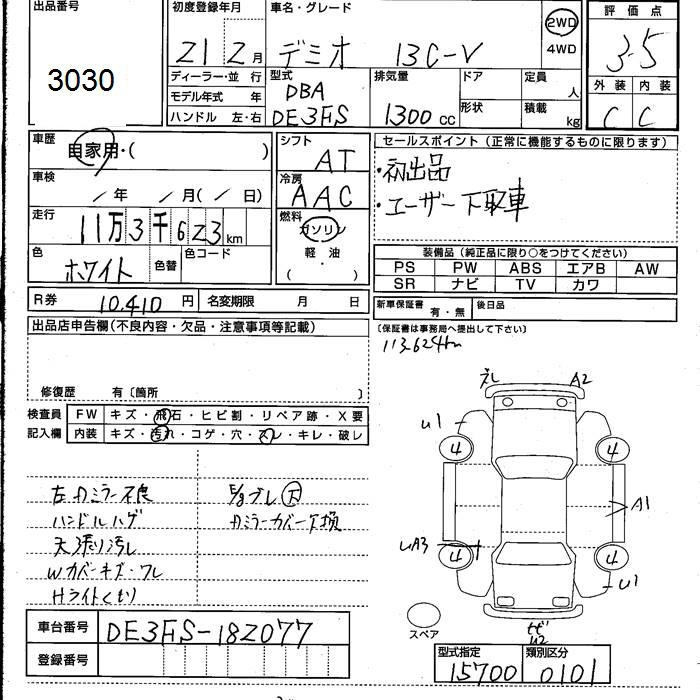 出品番号
3030
初度登録年月
21 2月
車名・グレード
デミオ 13C-V
2WD
4WD
評価点
3.5
外装 内装
C C
ディーラー・並行
モデル年式 年
ハンドル 左・右
型式
DBA
DE3FS
排気量
1300cc
ドア
形状
定員
人
積載
kg
車歴
自家用・( )
車検
/年 /月(/日)
走行
11万3千623km
色
ホワイト
色替
色コード
シフト
AT
冷房
AAC
燃料
ガソリン
軽・油
( ・ )
セールスポイント(正常に機能するものに限ります)
・初出品
・ユーザー下取車
装備品(純正品に限り○をつけてください)
PS PW ABS エアB AW
SR ナビ TV カワ
R券 10,410円
名変期限 月 日
新車保証書 有・無
後日品
(保証書は事務局へ提出して下さい)
113,624km
出品店申告欄(不良内容・欠品・注意事項等記載)
修復歴 有〔箇所 〕
検査員
記入欄
FW キズ・飛石・ヒビ割・リペア跡・X要
内装 キズ・汚れ・コゲ・穴・スレ・キレ・破レ
左Dミラー不良
ハンドルハゲ
天張り汚レ
Wカバーキズ・ワレ
Hライトくもり
E/gブレ 下
Dミラーカバー欠損
A2
U1
4 4
A1
UA3
4 4
U1
スペア
U2
車台番号 DE3FS-182077
登録番号
型式指定
15700
類別区分
0101